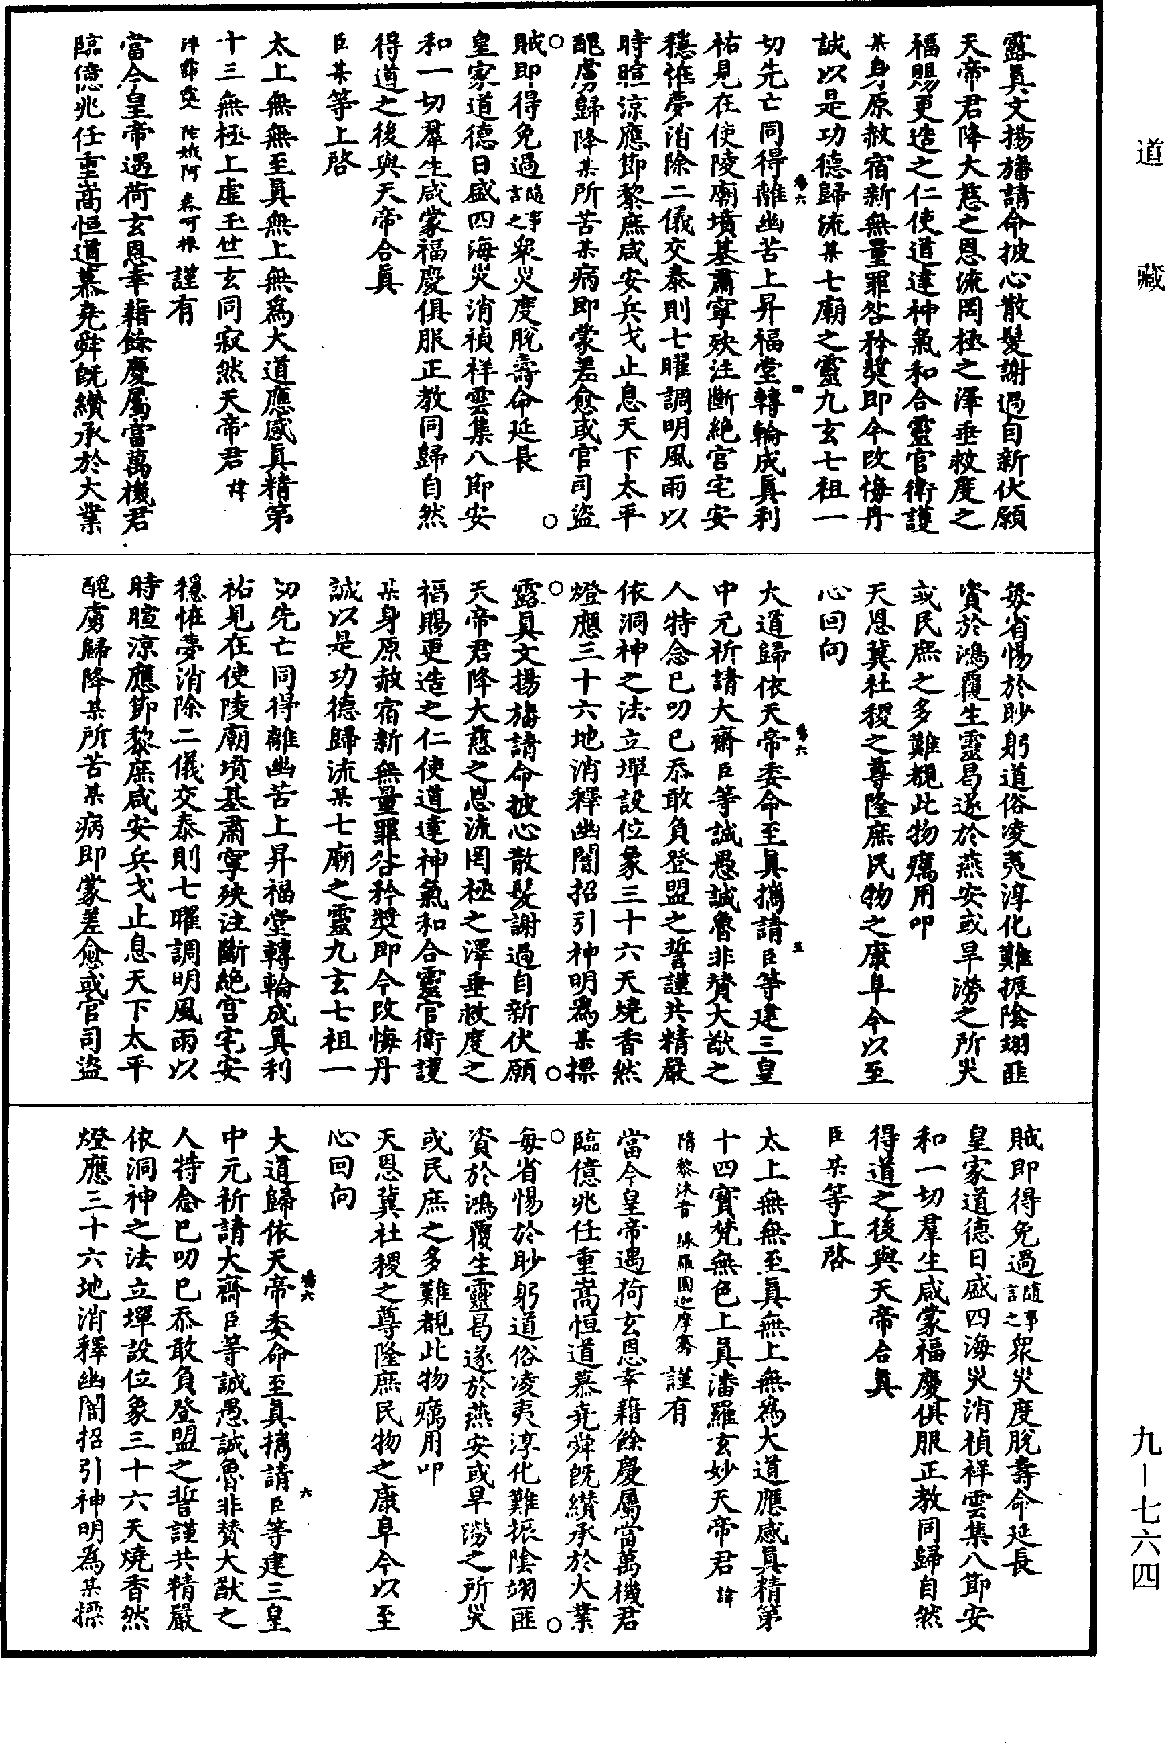 道藏
九—七六四
露眞文揚旛請命披心散髮謝過自新伏願
天帝君降大慈之恩流罔極之澤垂救度之
福賜更造之仁使道達神氣和合靈官衛護
某身原赦宿新無量罪咎矜奬即今改悔丹
誠以是功德歸流某七廟之靈九玄七祖一
切先亡同得離幽苦上昇福堂轉輪成眞利
祐見在使陵廟墳基肅寧殃注斷絕宮宅安
穩惟夢消除二儀交泰則七曜調明風雨以
時暄涼應節黎庶咸安兵戈止息天下太平
醜虜歸降某所苦某病即蒙差愈或官司盜
賊即得免過隨事言之衆災度脫壽命延長
皇家道德日盛四海災消禎祥雲集八節安
和一切羣生咸蒙福慶俱服正教同歸自然
得道之後與天帝合眞
臣某等上啓
太上無無至眞無上無爲大道應感眞精第
十三無極上虛玉世玄同寂然天帝君諱
謹有
當今皇帝遇荷玄恩幸藉餘慶屬當萬機君
臨億兆任重嵩恒道慕堯舜旣纘承於大業
每省惕於眇躬道俗凌夷淳化難振陰翊匪
資於鴻覆生靈曷遂於燕安或旱澇之所災
或民庶之多難覩此物癘用叩
天恩冀社稷之尊隆庶民物之康阜今以至
心回向
大道歸依天帝委命至眞攜請臣等建三皇
中元祈請大齋臣等誠愚誠魯非贊大猷之
人特念已叨已忝敢負登盟之誓謹共精嚴
依洞神之法立墠設位象三十六天燒香然
燈應三十六地消釋幽闇招引神明爲某摽
露眞文揚旛請命披心散髮謝過自新伏願
天帝君降大慈之恩流罔極之澤垂救度之
福賜更造之仁使道達神氣和合靈官衛護
某身原赦宿新無量罪咎矜奬即今改悔丹
誠以是功德歸流某七廟之靈九玄七祖一
切先亡同得離幽苦上昇福堂轉輪成眞利
祐見在使陵廟墳基肅寧殃注斷絕宮宅安
穩惟夢消除二儀交泰則七曜調明風雨以
時暄涼應節黎庶咸安兵戈止息天下太平
醜虜歸降某所苦某病即蒙差愈或官司盜
賊即得免過隨事言之衆災度脫壽命延長
皇家道德日盛四海災消禎祥雲集八節安
和一切羣生咸蒙福慶俱服正教同歸自然
得道之後與天帝合眞
臣某等上啓
太上無無至眞無上無爲大道應感眞精第
十四寶梵無色上眞潘羅玄妙天帝君諱
謹有
當今皇帝遇荷玄恩幸藉餘慶屬當萬機君
臨億兆任重嵩恒道慕堯舜旣纘承於大業
每省惕於眇躬道俗凌夷淳化難振陰翊匪
資於鴻覆生靈曷遂於燕安或旱澇之所災
或民庶之多難覩此物癘用叩
天恩冀社稷之尊隆庶民物之康阜今以至
心回向
大道歸依天帝委命至眞攜請臣等建三皇
中元祈請大齋臣等誠愚誠魯非贊大猷之
人特念已叨已忝敢負登盟之誓謹共精嚴
依洞神之法立墠設位象三十六天燒香然
燈應三十六地消釋幽闇招引神明爲某摽